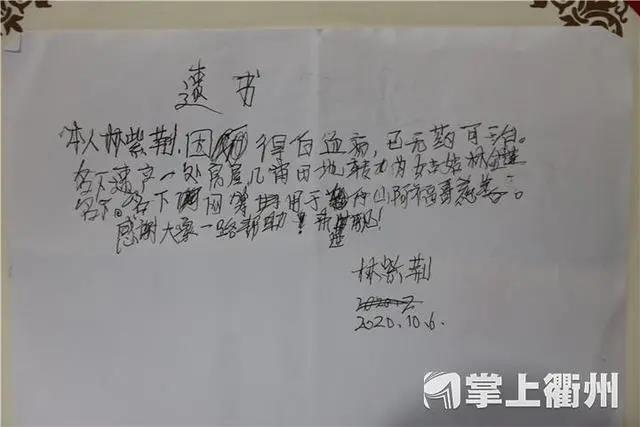 遗书
本人林紫荆,因得白血病,已无药可治。
名下遗产一处房屋几亩田地转为好姑姑林
名下。名下网筹用于舟山阿福哥慈善。
感谢大家一路帮助!
林紫荆
2020.10.6.
掌上衢州